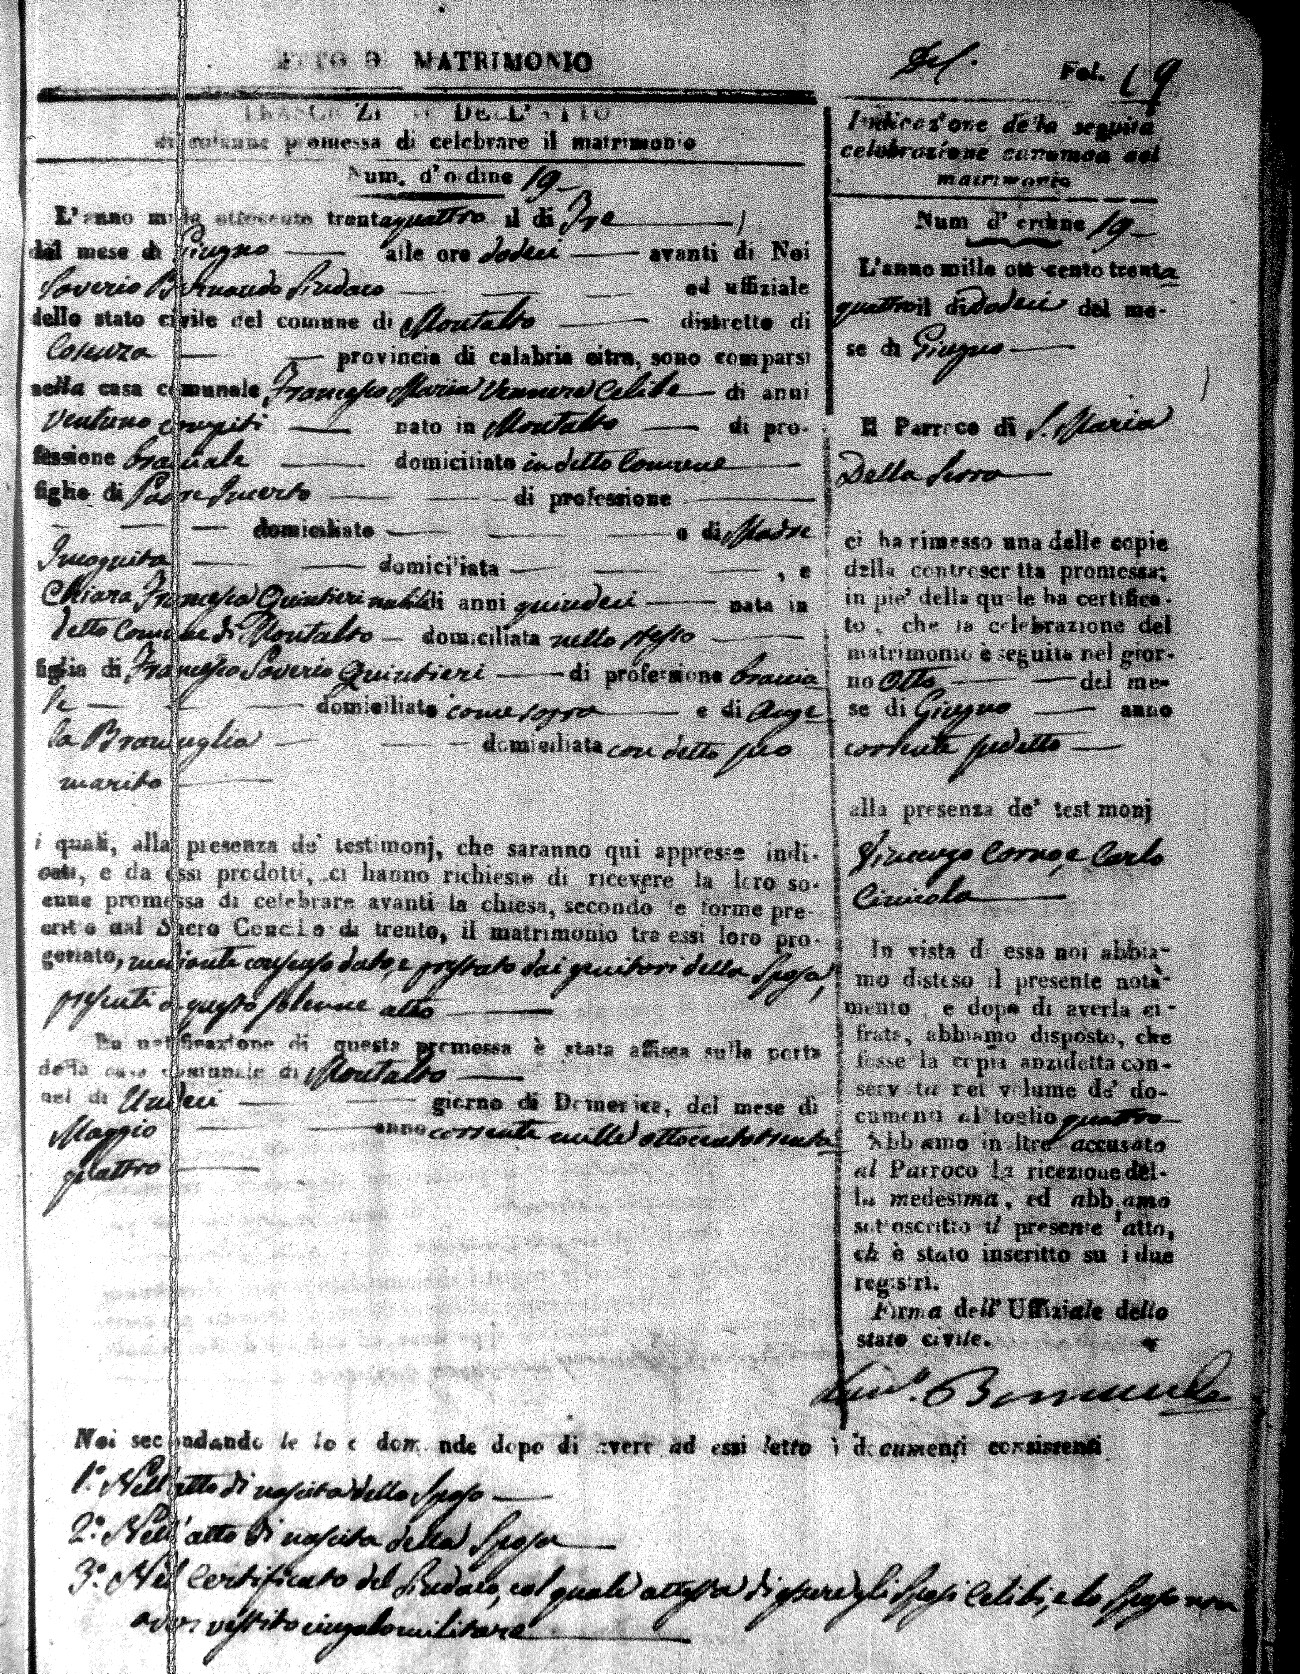 ATTO DI MATRIMONIO
Fol. 19
DELL'ATTO
di solenne promessa di celebrare il matrimonio
Num. d'ordine 19
L'anno mille ottocento trentaquattro il dì Tre
del mese di Giugno alle ore dodeci avanti di Noi
Saverio Bernaudo Sindaco ed uffiziale
dello stato civile del comune di Montalto distretto di
Cosenza provincia di calabria citra, sono comparsi
nella casa comunale Francesco Maria Vennera Celibe di anni
Ventuno compiti nato in Montalto di pro-
fessione bracciale domiciliato in detto Comune
figlio di Padre Incerto di professione
domiciliato e di Madre
Incognita domiciliata , e
Chiara Francesca Quintieri nubile di anni quindeci nata in
detto Comune di Montalto domiciliata nello stesso
figlia di Francesco Saverio Quintieri di professione braccia
le domiciliato come sopra e di Ange
la domiciliata con detto suo
marito
i quali, alla presenza de' testimonj, che saranno qui appresse indi-
cati, e da essi prodotti, ci hanno richiesto di ricevere la loro so-
enne promessa di celebrare avanti la chiesa, secondo le forme pre-
critte dal Sacro Concilio di trento, il matrimonio tra essi loro pro-
gettato, mediante consenso dato, e prestato dai genitori della Sposa,
presenti a questo solenne atto
La notificazione di questa promessa è stata affissa sulla porta
della casa comunale di Montalto
nel dì Undeci giorno di Domenica, del mese di
Maggio anno corrente mille ottocentotrenta
quattro
Indicazione della seguita
celebrazione canonica del
matrimonio
Num d'ordine 19
L'anno mille ottocento trenta
quattro il dì dodeci del me-
se di Giugno
Il Parroco di S. Maria
Della Serra
ci ha rimesso una delle copie
della controscritta promessa;
in pie' della quale ha certifica-
to, che la celebrazione del
matrimonio è seguita nel gior-
no Otto del me-
se di Giugno anno
corrente sudetto
alla presenza de' testimonj
Vincenzo Corno, e Carlo
In vista di essa noi abbia-
mo disteso il presente notà-
mento, e dopo di averla ci-
frata, abbiamo disposto, che
fosse la copia anzidetta con-
servata nel volume de' do-
cumenti al foglio quattro
Abbiamo inoltre accusato
al Parroco la ricezione del-
la medesima, ed abbiamo
sottoscritto il presente atto,
ch è stato inscritto su i due
registri.
Firma dell' Uffiziale dello
stato civile.
Bernaudo
Noi secondando le loro domande dopo di avere ad essi letto i documenti consistenti
1.° Nell'atto di nascita dello Sposo
2.° Nell'atto di nascita della Sposa
3.° Nel Certificato del Sindaco, col quale attesta di essere gli Sposi Celibi, e lo Sposo non
aver vestito cingolo militare